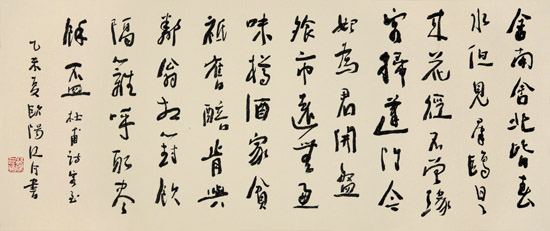 舍南舍北皆春
水但見羣鷗日々
來花徑不曾緣
客掃蓬門今
始為君開盤
飧市遠無兼
味樽酒家貧
祗舊醅肯與
鄰翁相對飲
隔籬呼取盡
餘盃 杜甫詩客至
乙未夏歐陽江河書